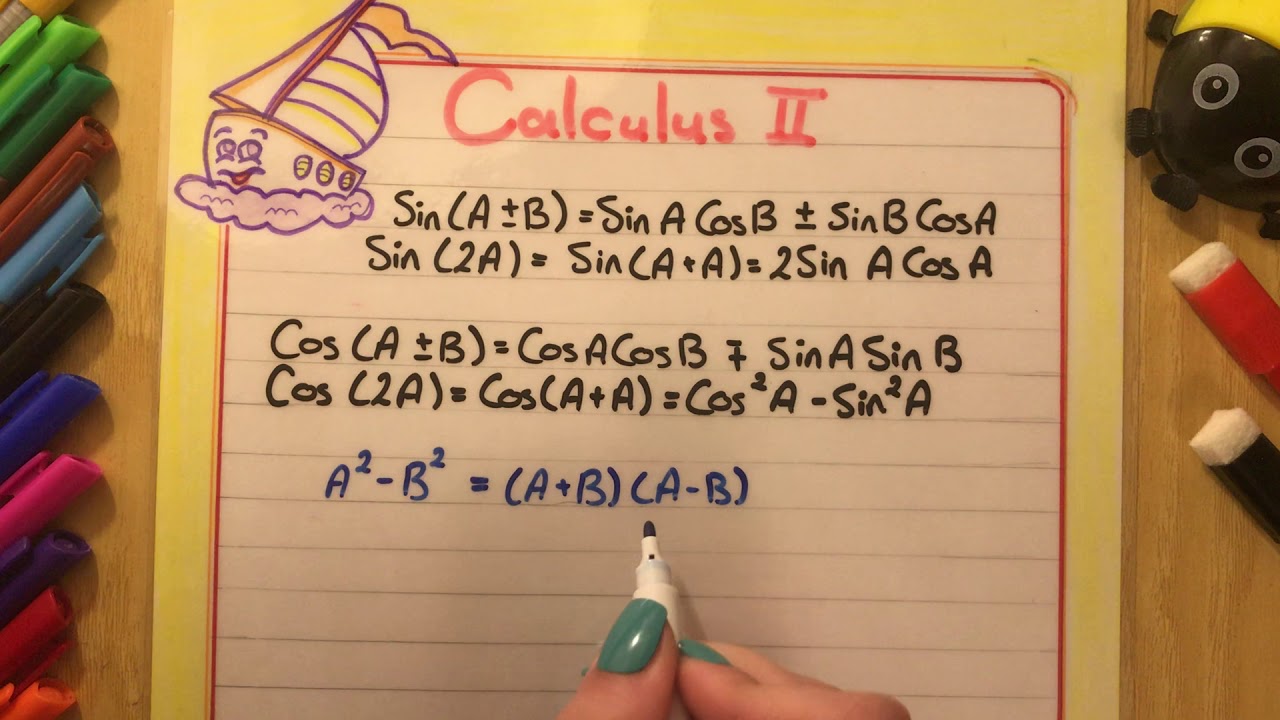 Calculus II
Sin(A ± B) = Sin A Cos B ± Sin B Cos A
Sin (2A) = Sin(A + A) = 2 Sin A Cos A
Cos (A ± B) = Cos A Cos B ∓ Sin A Sin B
Cos (2A) = Cos(A + A) = Cos²A - Sin²A
A² - B² = (A + B) (A - B)